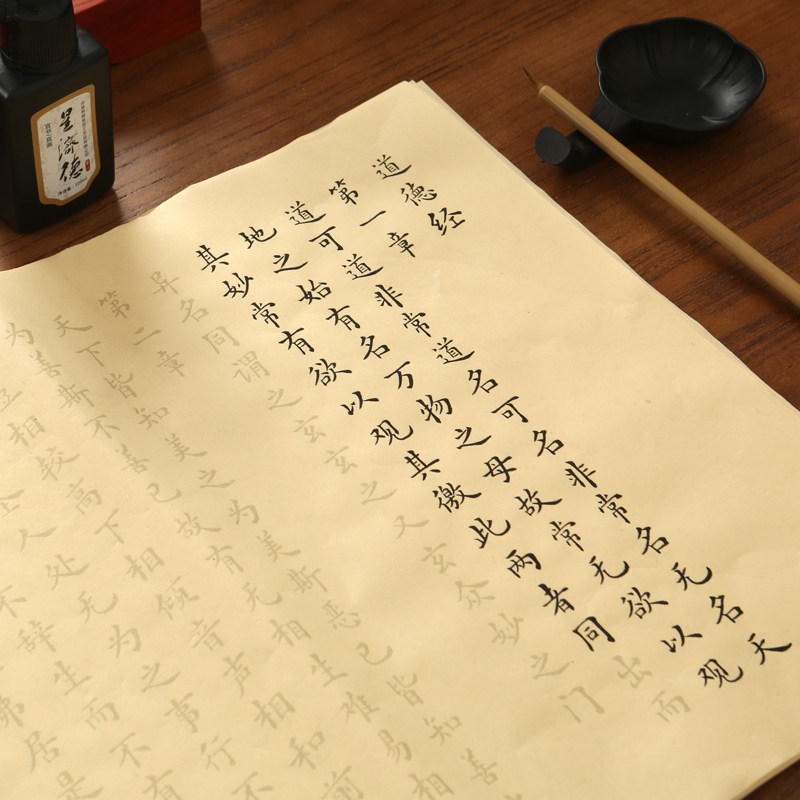 道德经
第一章
道可道非常道名可名非常名无名天
地之始有名万物之母故常无欲以观
其妙常有欲以观其徼此两者同出而
异名同谓之玄玄之又玄众妙之门
第二章
天下皆知美之为美斯恶已皆知善
为善斯不善已故有无相生难易相
相较高下相倾音声相和前
人处无为之事行不
不辞生而不有
弗居是